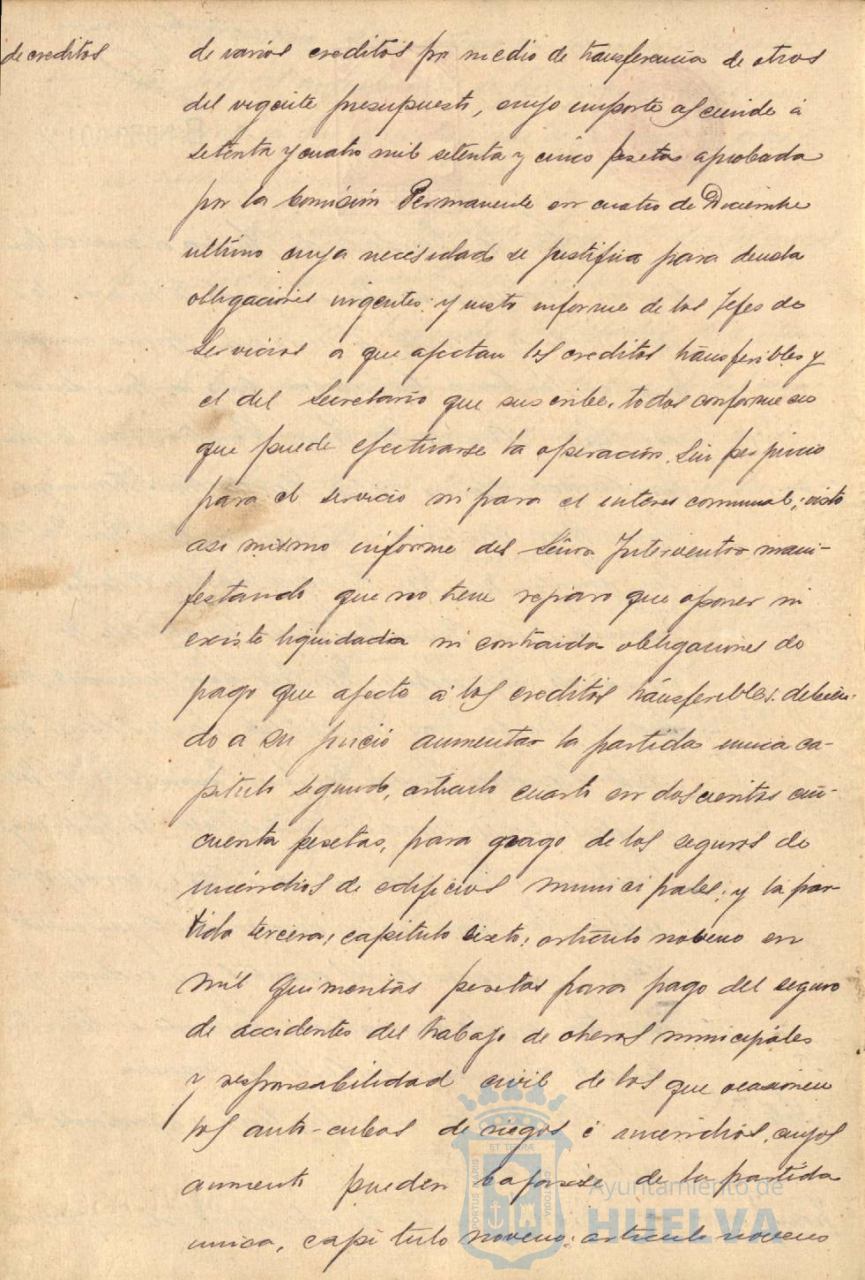 de creditos
de varios creditos por medio de transferencia de otros
del vigente presupuesto, cuyo importe asciende á
setenta y cuatro mil setenta y cinco pesetas aprobada
por la Comisión Permanente en cuatro de Diciembre
ultimo cuya necesidad se justifica para
obligaciones urgentes: y visto informe de los Jefes de
Servicios a que afectan los creditos transferibles y
el del Secretario que suscribe, todos conformes en
que puede efectuarse la operación, sin perjuicio
para el servicio ni para el interes comunal; visto
asi mismo informe del Señor Interventor mani-
festando que no tiene reparo que oponer ni
existe liquidada ni contraida obligaciones de
pago que afecte á los creditos transferibles. debien-
do a su juicio aumentar la partida unica ca-
pitulo segundo, articulo cuarto en doscientas cin-
cuenta pesetas, para pago de los seguros de
incendios de edificios municipales; y la par-
tida tercera, capitulo sexto, articulo noveno en
mil quinientas pesetas para pago del seguro
de accidentes del trabajo de obreros municipales
y responsabilidad civil de los que ocasionen
los auto-cubas de riegos é incendios, cuyos
aumento pueden bajarse de la partida
unica, capitulo noveno, articulo noveno
PORTUS MARIS
ET TERRAE
CUSTODIA
Ayuntamiento de
HUELVA